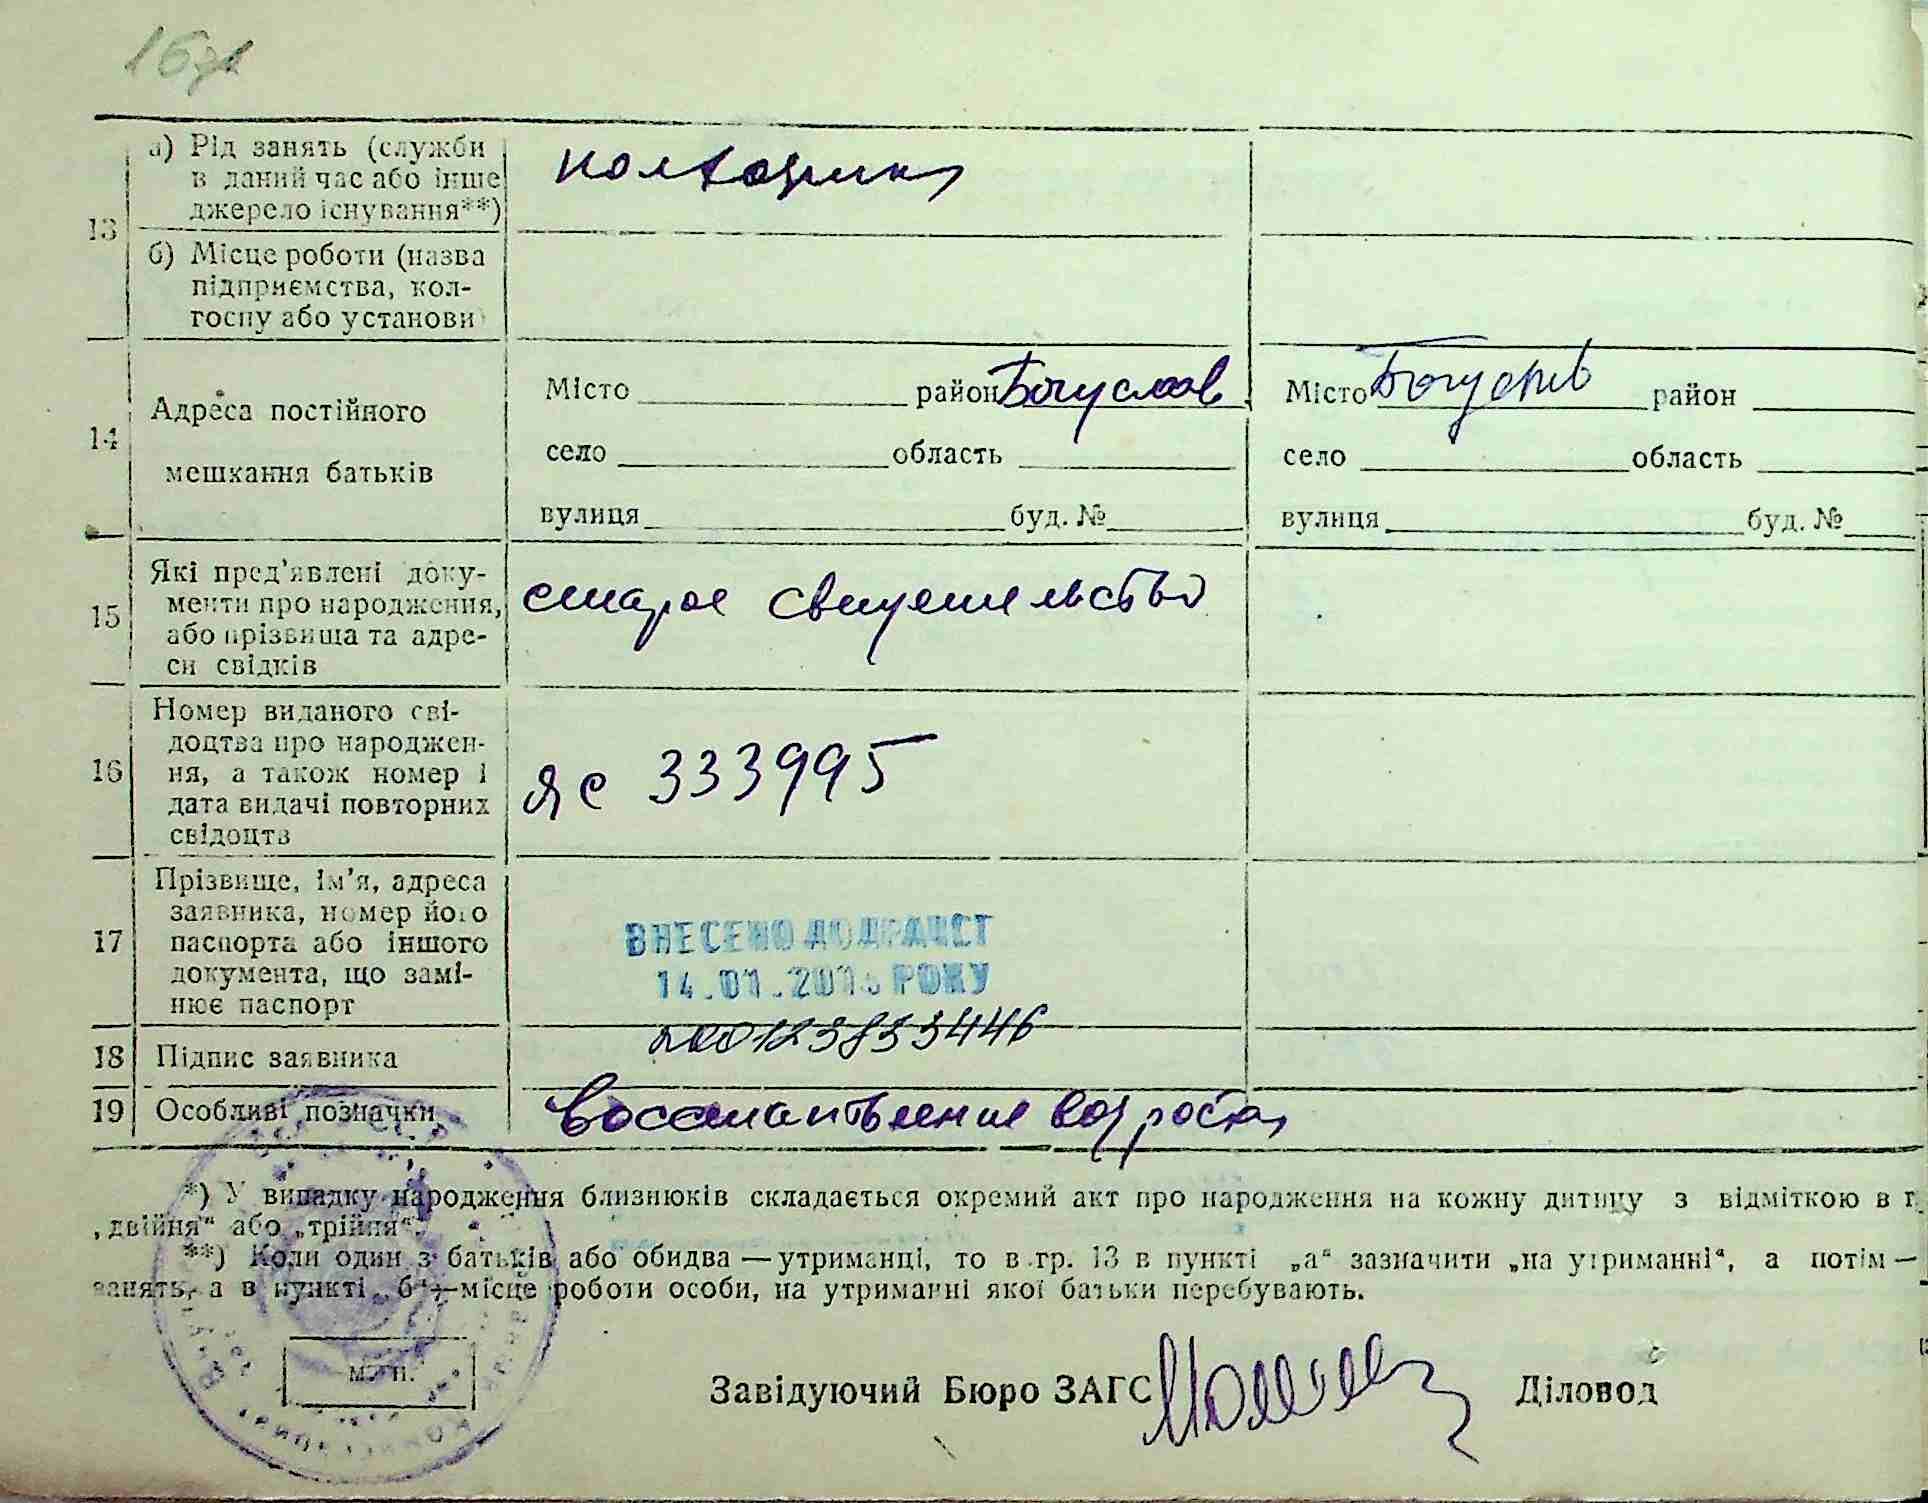 а) Рід занять (служби
в даний час або інше
джерело існування**)
13
б) Місце роботи (назва
підприємства, кол-
госпу або установи)
14
Адреса постійного
мешкання батьків
Місто район Богуслав
село область
вулиця буд. №
Місто район
село область
вулиця буд. №
15
Які пред'явлені доку-
менти про народження,
або прізвища та адре-
си свідків
старое свидетельство
16
Номер виданого сві-
доцтва про народжен-
ня, а також номер і
дата видачі повторних
свідоцтв
ЯС 333995
17
Прізвище, ім'я, адреса
заявника, номер його
паспорта або іншого
документа, що замі-
нює паспорт
ВНЕСЕНО ДО ДРАЦСГ
14.01. РОКУ
18 Підпис заявника
19 Особливі позначки
восстановление возраста
*) У випадку народження близнюків складається окремий акт про народження на кожну дитину з відміткою в
„двійня“ або „трійня“.
**) Коли один з батьків або обидва — утриманці, то в гр. 13 в пункті „а“ зазначити „на утриманні“, а потім —
занять, а в пункті „б“ — місце роботи особи, на утриманні якої батьки перебувають.
Завідуючий Бюро ЗАГС Діловод